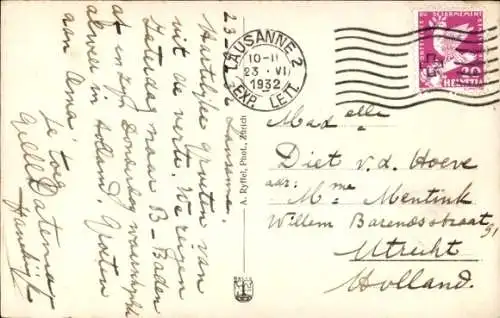 23-6-32 Lausanne.
Hartelijke Groeten van
uit de verte. We reizen
Zaterdag naar B-Baden
at en zijn Donderdag waarschijnlijk
alweer in Holland. Groeten
aan Oma!
Je toeg.
LAUSANNE 2
10-11
23·VI
1932
EXP. LETT.
HELVETIA
20
A. Ryffel, Phot., Zürich
Mad elle
Diet v.d. Hoeve
adr: Mme Mentink
Willem Barendsstraat 91
Utrecht
Holland.